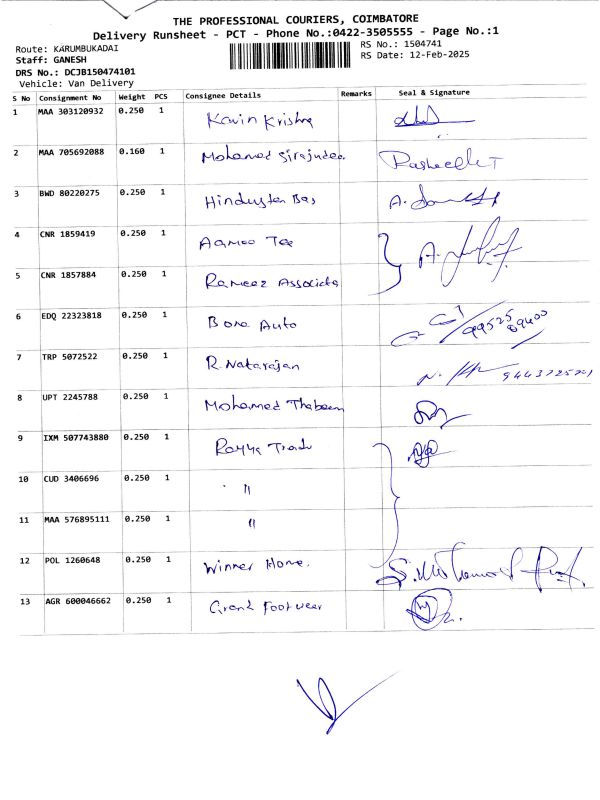 THE PROFESSIONAL COURIERS, COIMBATORE
Delivery Runsheet - PCT - Phone No.:0422-3505555 - Page No.:1
Route: KARUMBUKADAI
RS No.: 1504741
Staff: GANESH
RS Date: 12-Feb-2025
DRS No.: DCJB150474101
Vehicle: Van Delivery
S No Consignment No Weight PCS Consignee Details Remarks Seal & Signature
1 MAA 303120932 0.250 1 Kavin Krishna
2 MAA 705692088 0.160 1 Mohamed Sirajudee
3 BWD 80220275 0.250 1 Hindustan Bag
4 CNR 1859419 0.250 1 Tee
5 CNR 1857884 0.250 1 Rameez Associate
6 EDQ 22323818 0.250 1 Bone Auto
7 TRP 5072522 0.250 1 R. Natarajan
8 UPT 2245788 0.250 1 Mohamed Thabeem
9 IXM 507743880 0.250 1
10 CUD 3406696 0.250 1 "
11 MAA 576895111 0.250 1 "
12 POL 1260648 0.250 1 Winner Home.
13 AGR 600046662 0.250 1 Grand Footwear